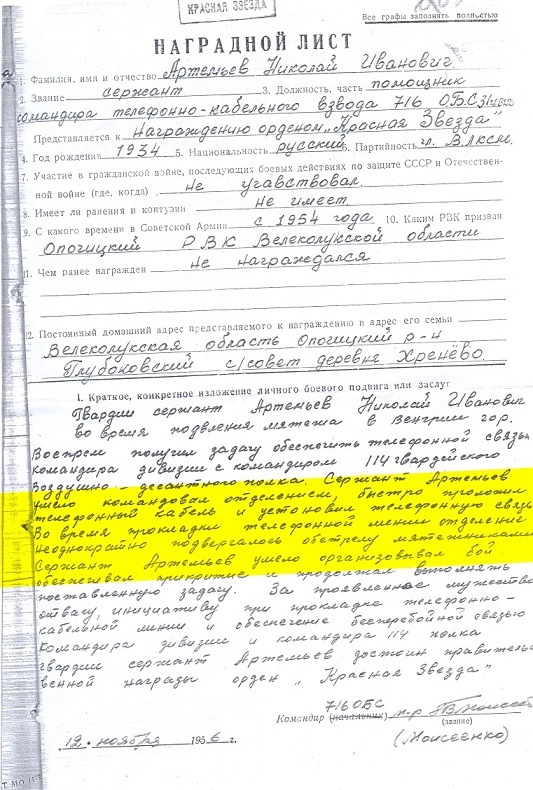 КРАСНАЯ ЗВЕЗДА
Все графы заполнять полностью
НАГРАДНОЙ ЛИСТ
1. Фамилия, имя и отчество Артемьев Николай Иванович
2. Звание сержант 3. Должность, часть помощник
командира телефонно-кабельного взвода 716 О.Б.С.
Представляется к награждению орденом „Красная Звезда"
4. Год рождения 1934 5. Национальность русский 6. Партийность чл. ВЛКСМ.
7. Участие в гражданской войне, последующих боевых действиях по защите СССР и Отечествен-
ной войне (где, когда) не учавствовал.
8. Имеет ли ранения и контузии не имеет.
9. С какого времени в Советской Армии с 1954 года 10. Каким РВК призван
Опочицкий РВК Велеколукской области
11. Чем ранее награжден не награждался
12. Постоянный домашний адрес представляемого к награждению и адрес его семьи
Велеколукская область Опочицкий р-н
Глубоковский с/совет деревня Хренёво.
I. Краткое, конкретное изложение личного боевого подвига или заслуг
Гвардии сержант Артемьев Николай Иванович
во время подвления мятежа в Венгрии гор.
Воспрем получил задачу обеспечить телефонной связью
командира дивизии с командиром 114 гвардейского
воздушно-десантного полка. Сержант Артемьев
умело командовал отделением, быстро проложил
телефонный кабель и установил телефонную связь.
Во время прокладки телефонной линии отделение
неоднократно подвергалось обстрелу мятежниками.
Сержант Артемьев умело организовывал бой
обеспечивал прикрытие и продолжал выполнять
поставленную задачу. За проявленное мужество
отвагу, инициативу при прокладке телефонно-
кабельной линии и обеспечение бесперебойной связью
командира дивизии и командира 114 полка
гвардии сержант Артемьев достоин правительс-
венной награды орден „Красная Звезда"
716 ОБС
Командир (начальник) м-р
(звание)
(Моисеенко)
12. ноября 1956 г.